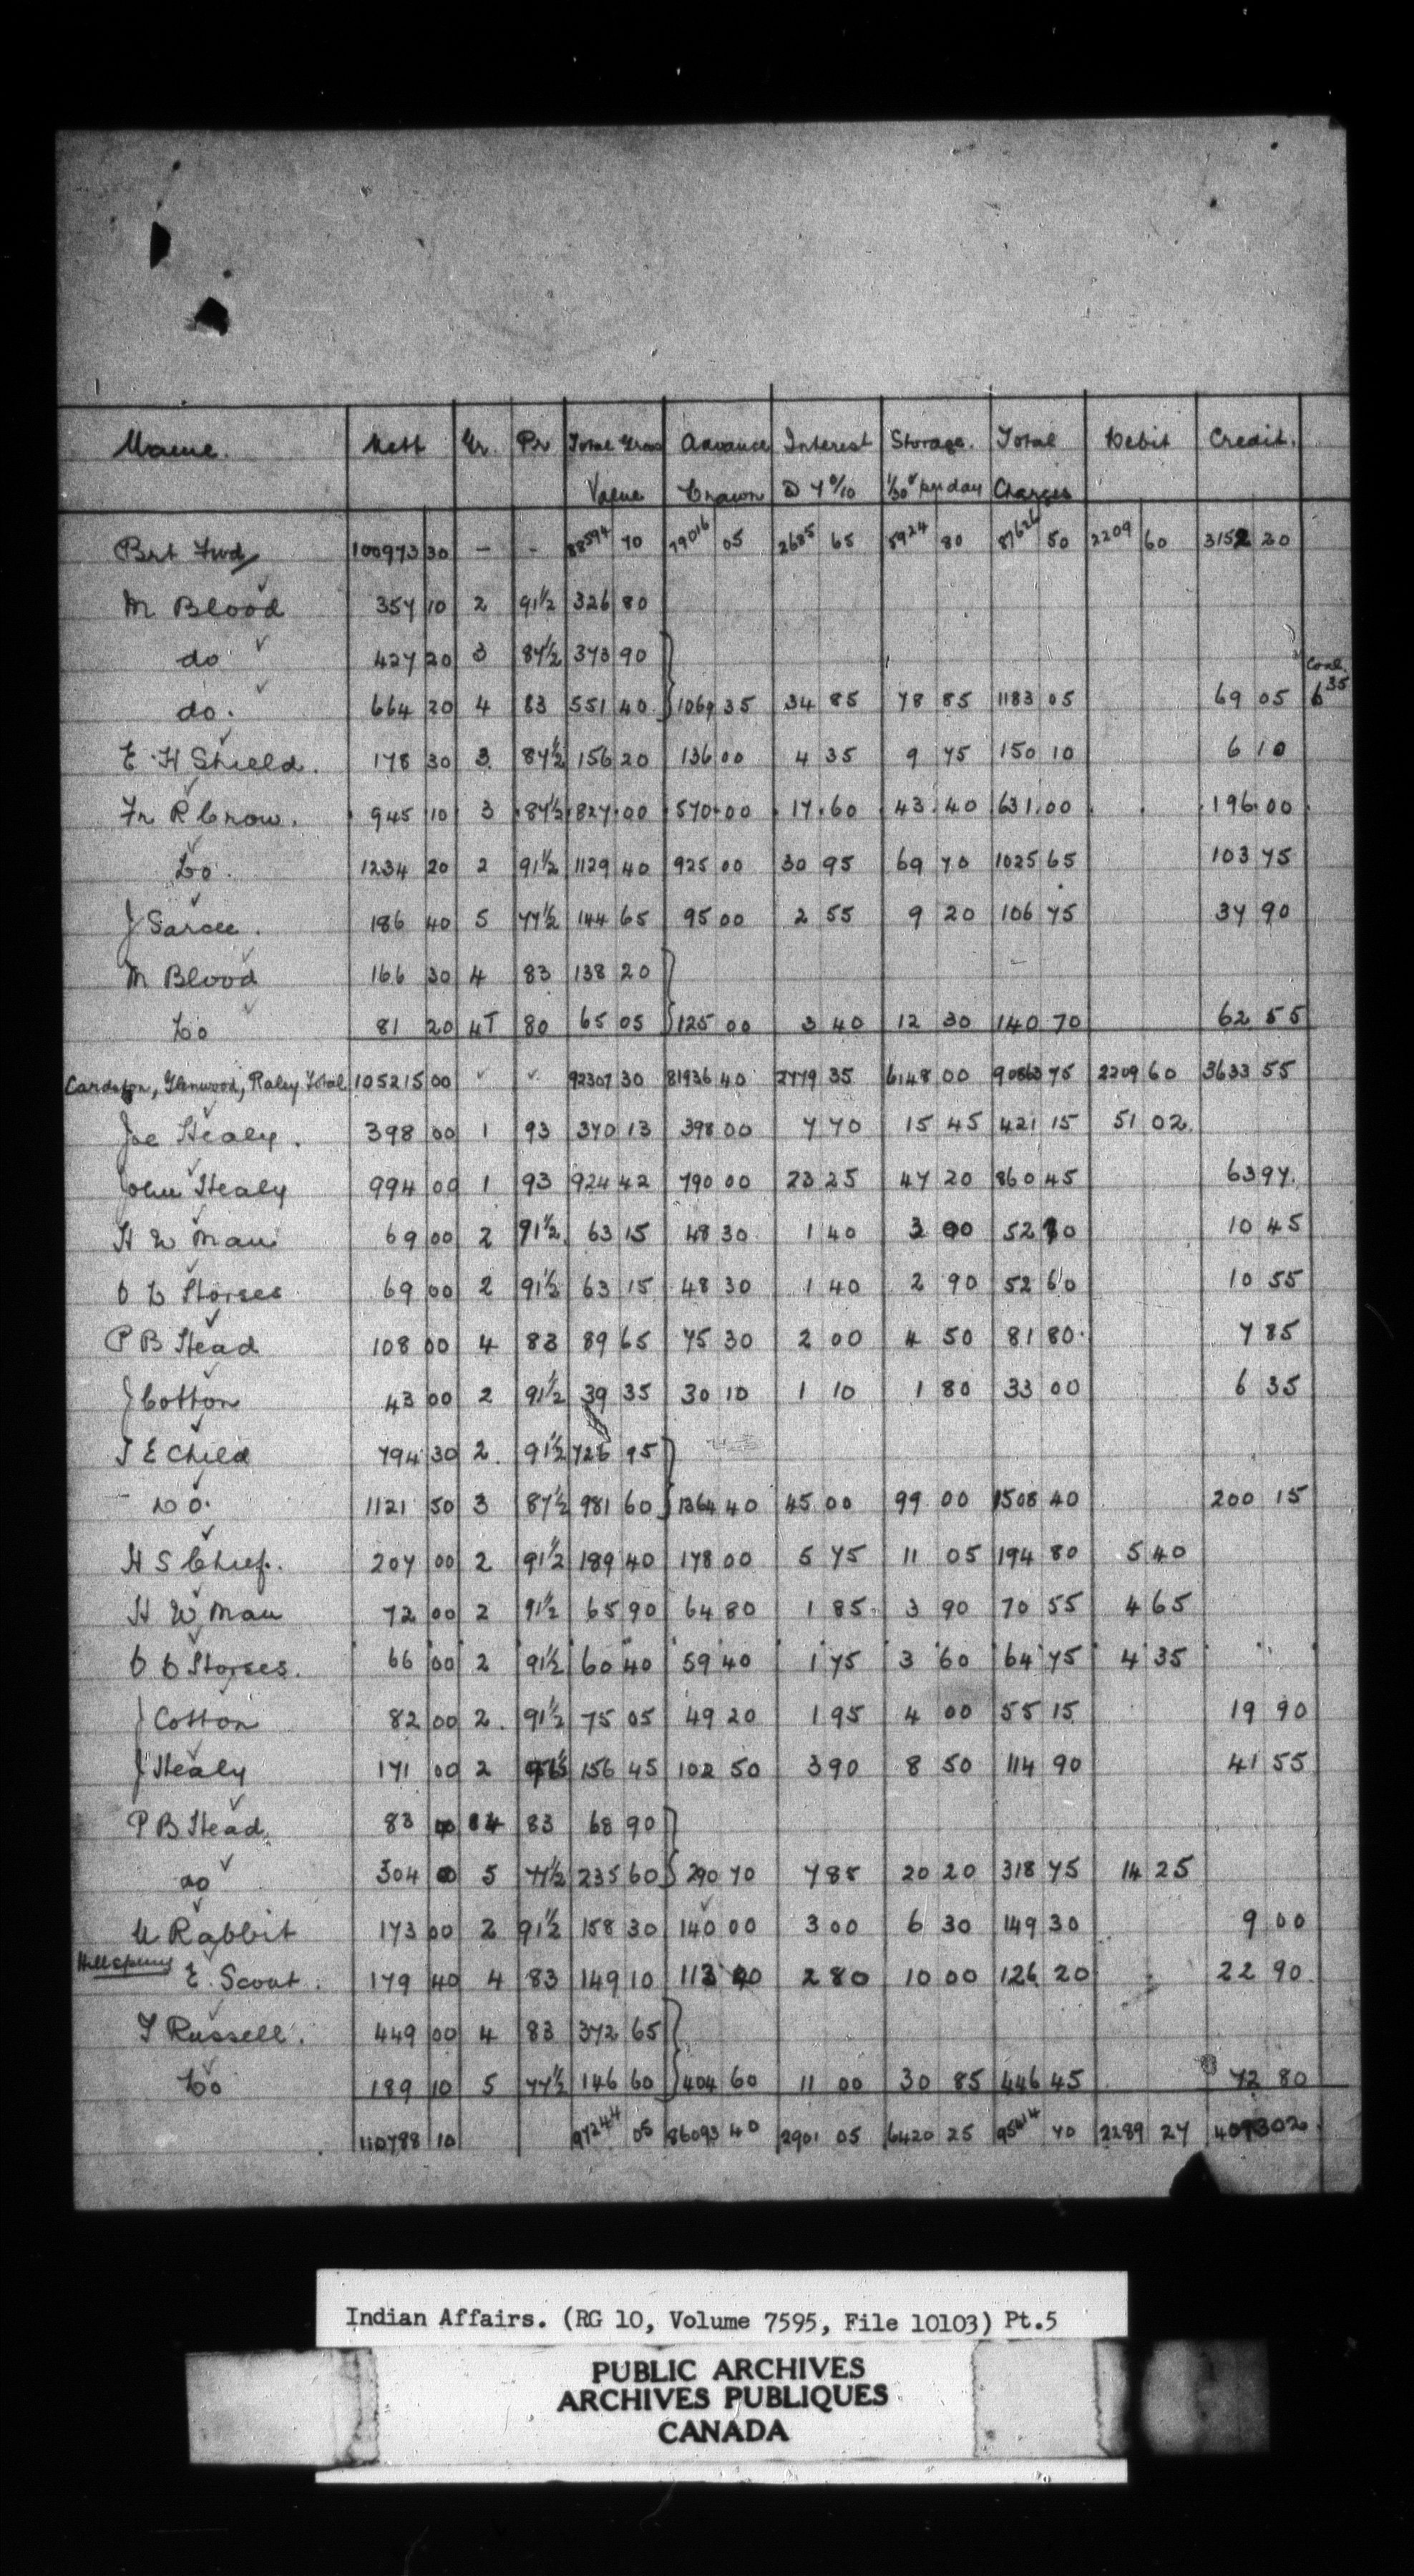 Name. Nett Gr. Pr Total Gross Advance Interest Storage. Total Debit Credit.
Value Drawn @ 7 % 1/30¢ per day Charges
Brt Fwd 100973 30 - - 88594 70 79016 05 2685 65 5924 80 87626 50 2209 60 3152 20
M Blood 357 10 2 91½ 326 80
do 427 20 3 87½ 373 90
Coal.
do. 664 20 4 83 551 40 1069 35 34 85 78 85 1183 05 69 05 6 35
E H Shield. 178 30 3 87½ 156 20 136 00 4 35 9 75 150 10 6 10
Fr R Crow. 945 10 3 87½ 827 00 570 00 17 60 43 40 631 00 196 00
Do. 1234 20 2 91½ 1129 40 925 00 30 95 69 70 1025 65 103 75
J Sarcee. 186 40 5 77½ 144 65 95 00 2 55 9 20 106 75 37 90
M Blood 166 30 4 83 138 20
Do 81 20 4T 80 65 05 125 00 3 40 12 30 140 70 62 55
Cardston, Glenwood, Raley Total 105215 00 92307 30 81936 40 2779 35 6148 00 90863 75 2209 60 3633 55
Joe Healy. 398 00 1 93 370 13 398 00 7 70 15 45 421 15 51 02
John Healy 994 00 1 93 924 42 790 00 23 25 47 20 860 45 63 97
H W Man 69 00 2 91½ 63 15 48 30 1 40 3 00 52 70 10 45
O D Horses 69 00 2 91½ 63 15 48 30 1 40 2 90 52 60 10 55
P B Head 108 00 4 83 89 65 75 30 2 00 4 50 81 80 7 85
J Cotton 43 00 2 91½ 39 35 30 10 1 10 1 80 33 00 6 35
T E Child 794 30 2. 91½ 726 95
Do. 1121 50 3 87½ 981 60 1364 40 45 00 99 00 1508 40 200 15
H S Chief. 207 00 2 91½ 189 40 178 00 5 75 11 05 194 80 5 40
H W Man 72 00 2 91½ 65 90 64 80 1 85 3 90 70 55 4 65
O D Horses. 66 00 2 91½ 60 40 59 40 1 75 3 60 64 75 4 35
J Cotton 82 00 2. 91½ 75 05 49 20 1 95 4 00 55 15 19 90
J Healy 171 00 2 91½ 156 45 102 50 3 90 8 50 114 90 41 55
P B Head 83 00 4 83 68 90
do 304 00 5 77½ 235 60 290 70 7 85 20 20 318 75 14 25
U Rabbit 173 00 2 91½ 158 30 140 00 3 00 6 30 149 30 9 00
Hillspring E. Scout. 179 40 4 83 149 10 113 40 2 80 10 00 126 20 22 90
T Russell. 449 00 4 83 372 65
Do 189 10 5 77½ 146 60 404 60 11 00 30 85 446 45 72 80
110788 10 97244 05 86093 40 2901 05 6420 25 95414 70 2289 27 4093 02
Indian Affairs. (RG 10, Volume 7595, File 10103) Pt.5
PUBLIC ARCHIVES
ARCHIVES PUBLIQUES
CANADA